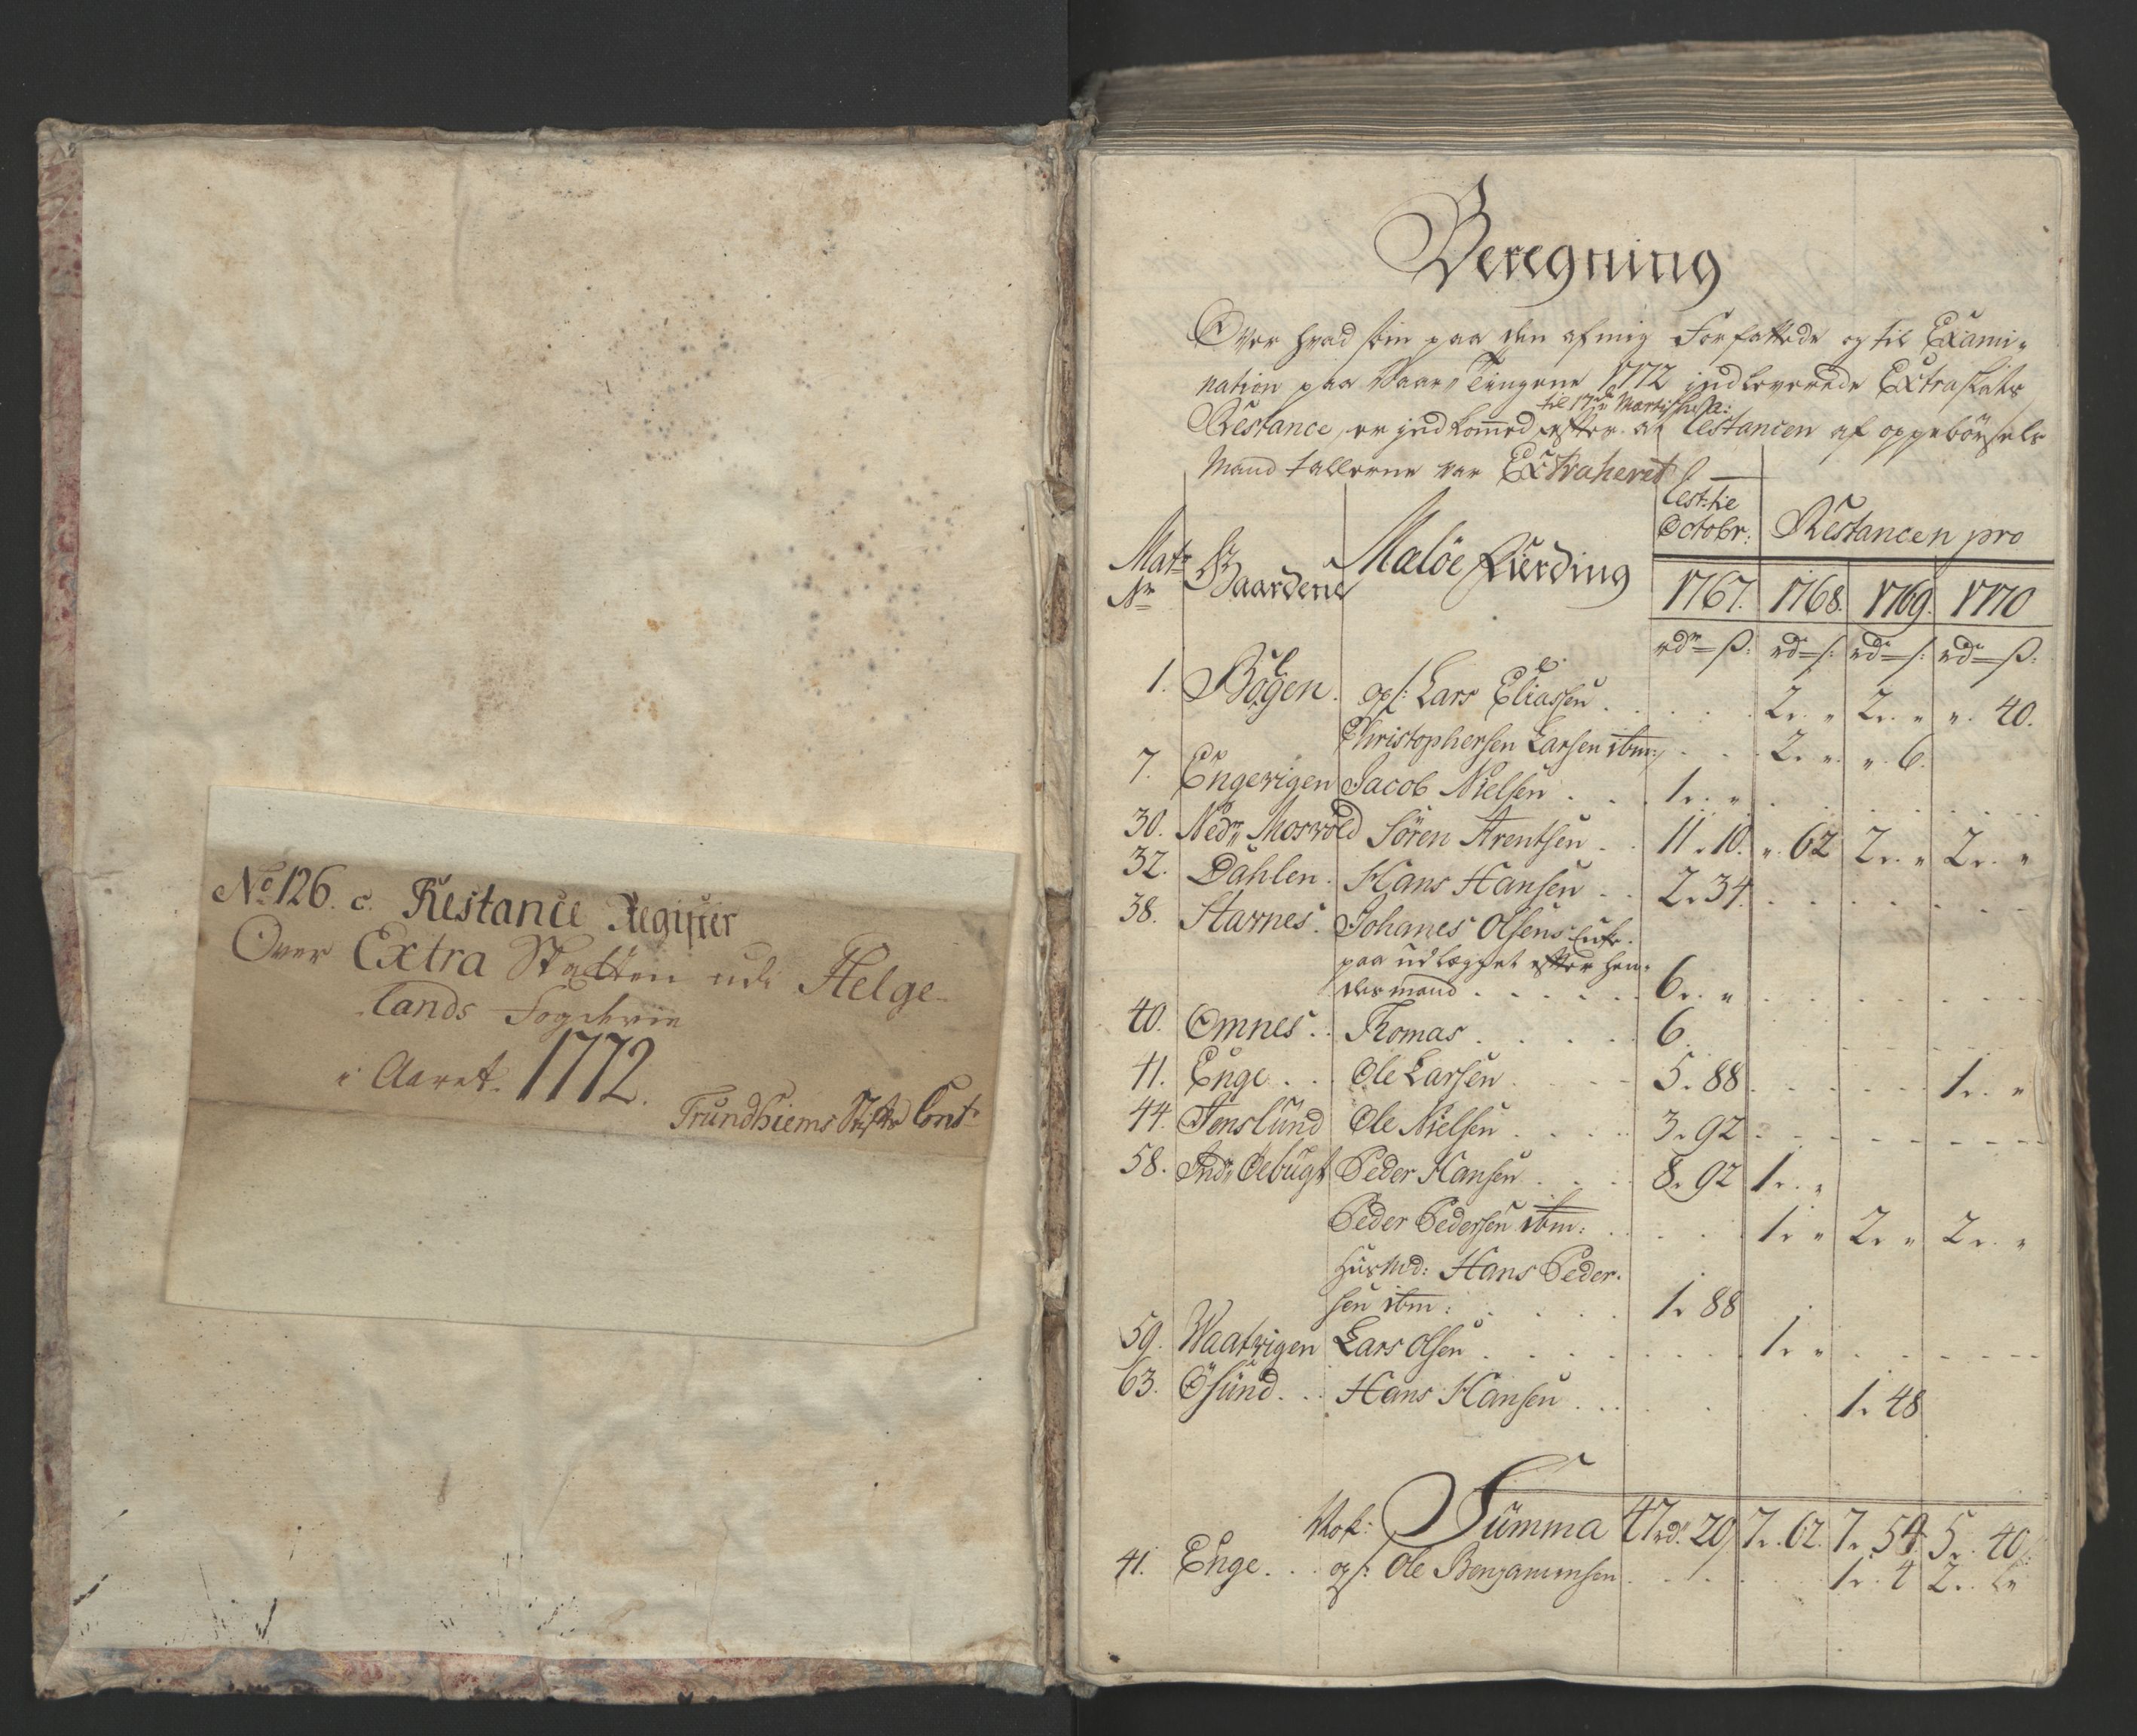 No 126. c. Restance Register
Over Extra Skatten udi Helge-
lands Fogderie
i Aaret 1772.
Trundhiems Stifts Cont:
Beregning
Over hvad som paa den af mig Forfattede og til Exami-
nation paa Vaar Tingene 1772 indleverede Extraskats
til 17de Martij
Restance, er indkommed efter at Restancen af oppebørsels
Mand tallerne var Extraheret
Rest: til
Octobr: Restancen pro
Matr No Gaardene Meløe Fierding
1767. 1768. 1769. 1770
rdr ß: rd ß: rd ß: rdr ß:
1. Bogen. ops: Lars Eliassen . . . . 2. " 2. " ". 40.
Christophersen Larsen ibm: . . 2. " ". 6.
7. Engevigen Jacob Nielsen . . . 1. "
30. Nedr: Mosvold Sören Arentsen . . 11. 10. ". 62 2. " 2. "
32. Dahlen. Hans Hansen . . 2. 34.
38. Starnes. Johanes Olsens Enke
paa udlægget efter hen-
des mand . . . . . . 6. "
40. Omnes. . Thomas . . . . . 6.
41. Enge. . . Ole Larsen . . . . 5. 88 . . . . . . 1. "
44. Stenslund Ole Nielsen . . . . 3. 92
58. Ind: Aebugt Peder Hansen . . . . 8. 92 1. "
Peder Pedersen ibm: . . . . 1. " 2. " 2. "
Husmd: Hans Peder-
sen ibm: . . . . 1. 88
59. Waatvigen Lars Olsen . . . . . . . 1. "
63. Øsund. . . Hans Hansen . . . . . 1. 48
Summa 47rd. 29 7. 62. 7. 54. 5. 40ß:
41. Enge. . . ops: Ole Benjaminsen . . . . . 1. 4 2.